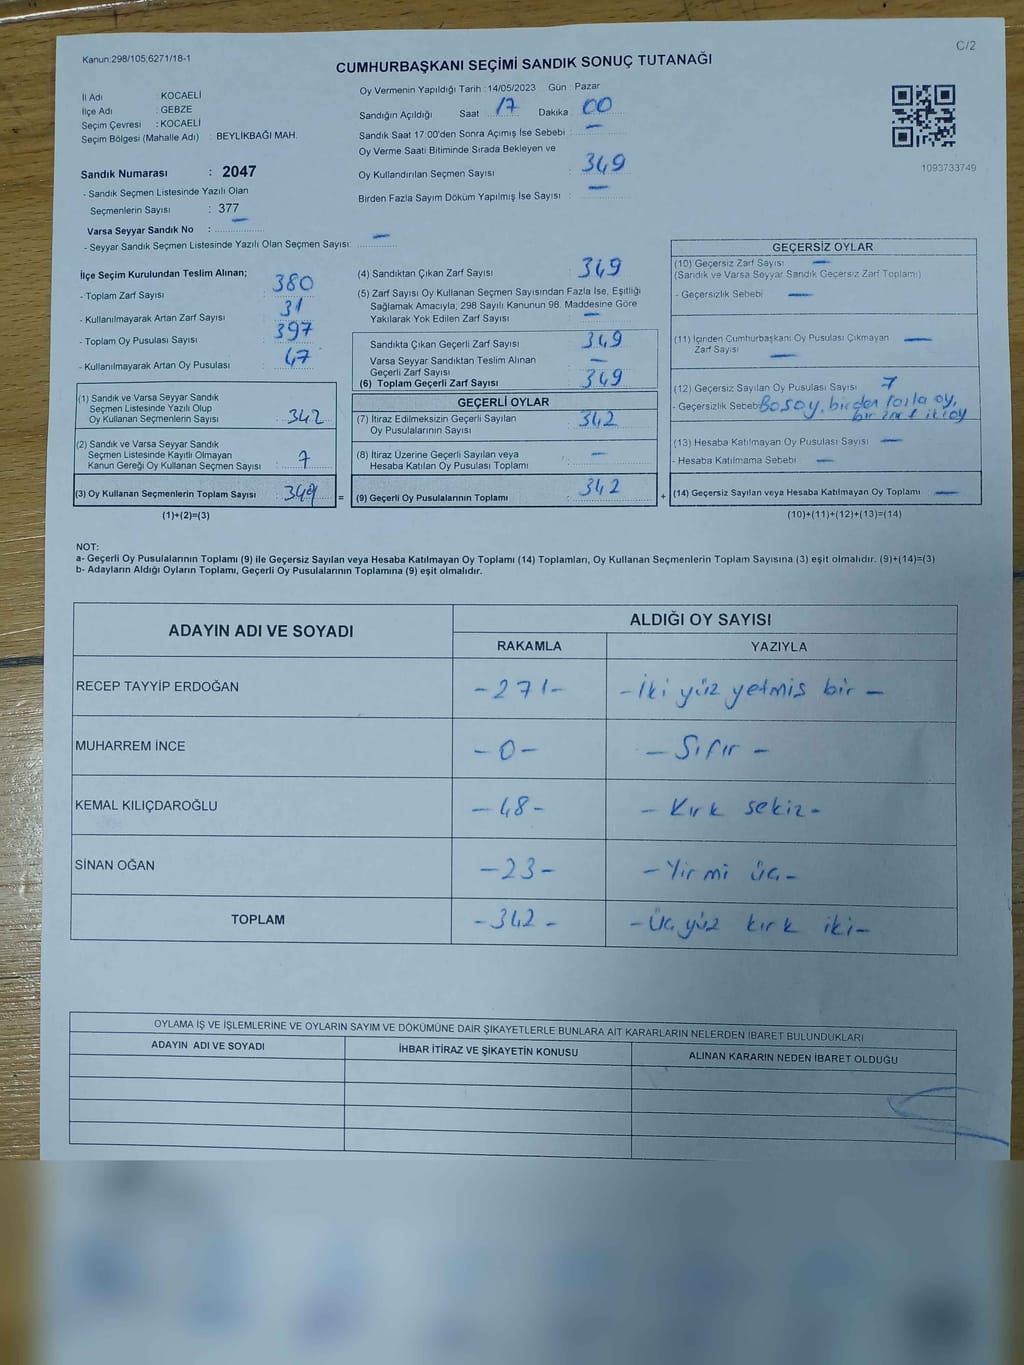 C/2
Kanun:298/105;6271/18-1
CUMHURBAŞKANI SEÇİMİ SANDIK SONUÇ TUTANAĞI
İl Adı : KOCAELİ
İlçe Adı : GEBZE
Seçim Çevresi : KOCAELİ
Seçim Bölgesi (Mahalle Adı) : BEYLİKBAĞI MAH.
Sandık Numarası : 2047
- Sandık Seçmen Listesinde Yazılı Olan
Seçmenlerin Sayısı : 377
Varsa Seyyar Sandık No : —
- Seyyar Sandık Seçmen Listesinde Yazılı Olan Seçmen Sayısı: —
Oy Vermenin Yapıldığı Tarih : 14/05/2023 Gün : Pazar
Sandığın Açıldığı Saat : 17 Dakika : 00
Sandık Saat 17:00'den Sonra Açımış İse Sebebi : —
Oy Verme Saati Bitiminde Sırada Bekleyen ve
Oy Kullandırılan Seçmen Sayısı : 349
Birden Fazla Sayım Döküm Yapılmış İse Sayısı : —
1093733749
İlçe Seçim Kurulundan Teslim Alınan;
- Toplam Zarf Sayısı : 380
- Kullanılmayarak Artan Zarf Sayısı : 31
- Toplam Oy Pusulası Sayısı : 397
- Kullanılmayarak Artan Oy Pusulası : 47
(1) Sandık ve Varsa Seyyar Sandık
Seçmen Listesinde Yazılı Olup
Oy Kullanan Seçmenlerin Sayısı : 342
(2) Sandık ve Varsa Seyyar Sandık
Seçmen Listesinde Kayıtlı Olmayan
Kanun Gereği Oy Kullanan Seçmen Sayısı : 7
(3) Oy Kullanan Seçmenlerin Toplam Sayısı : 349 =
(1)+(2)=(3)
(4) Sandıktan Çıkan Zarf Sayısı : 349
(5) Zarf Sayısı Oy Kullanan Seçmen Sayısından Fazla İse, Eşitliği
Sağlamak Amacıyla; 298 Sayılı Kanunun 98. Maddesine Göre
Yakılarak Yok Edilen Zarf Sayısı : —
Sandıkta Çıkan Geçerli Zarf Sayısı : 349
Varsa Seyyar Sandıktan Teslim Alınan
Geçerli Zarf Sayısı : —
(6) Toplam Geçerli Zarf Sayısı : 349
GEÇERLİ OYLAR
(7) İtiraz Edilmeksizin Geçerli Sayılan
Oy Pusulalarının Sayısı : 342
(8) İtiraz Üzerine Geçerli Sayılan veya
Hesaba Katılan Oy Pusulası Toplamı : —
(9) Geçerli Oy Pusulalarının Toplamı : 342 +
GEÇERSİZ OYLAR
(10) Geçersiz Zarf Sayısı : —
(Sandık ve Varsa Seyyar Sandık Geçersiz Zarf Toplamı)
- Geçersizlik Sebebi : —
(11) İçinden Cumhurbaşkanı Oy Pusulası Çıkmayan
Zarf Sayısı : —
(12) Geçersiz Sayılan Oy Pusulası Sayısı : 7
- Geçersizlik Sebebi : Boş oy, birden fazla oy,
bir zarf iki oy
(13) Hesaba Katılmayan Oy Pusulası Sayısı : —
- Hesaba Katılmama Sebebi : —
(14) Geçersiz Sayılan veya Hesaba Katılmayan Oy Toplamı : —
(10)+(11)+(12)+(13)=(14)
NOT:
a- Geçerli Oy Pusulalarının Toplamı (9) ile Geçersiz Sayılan veya Hesaba Katılmayan Oy Toplamı (14) Toplamları, Oy Kullanan Seçmenlerin Toplam Sayısına (3) eşit olmalıdır. (9)+(14)=(3)
b- Adayların Aldığı Oyların Toplamı, Geçerli Oy Pusulalarının Toplamına (9) eşit olmalıdır.
ADAYIN ADI VE SOYADI ALDIĞI OY SAYISI
RAKAMLA YAZIYLA
RECEP TAYYİP ERDOĞAN -271- -İki yüz yetmis bir -
MUHARREM İNCE -0- - Sıfır -
KEMAL KILIÇDAROĞLU -48- - Kırk sekiz -
SİNAN OĞAN -23- - Yirmi üç -
TOPLAM -342- - Üç yüz kırk iki -
OYLAMA İŞ VE İŞLEMLERİNE VE OYLARIN SAYIM VE DÖKÜMÜNE DAİR ŞİKAYETLERLE BUNLARA AİT KARARLARIN NELERDEN İBARET BULUNDUKLARI
ADAYIN ADI VE SOYADI İHBAR İTİRAZ VE ŞİKAYETİN KONUSU ALINAN KARARIN NEDEN İBARET OLDUĞU